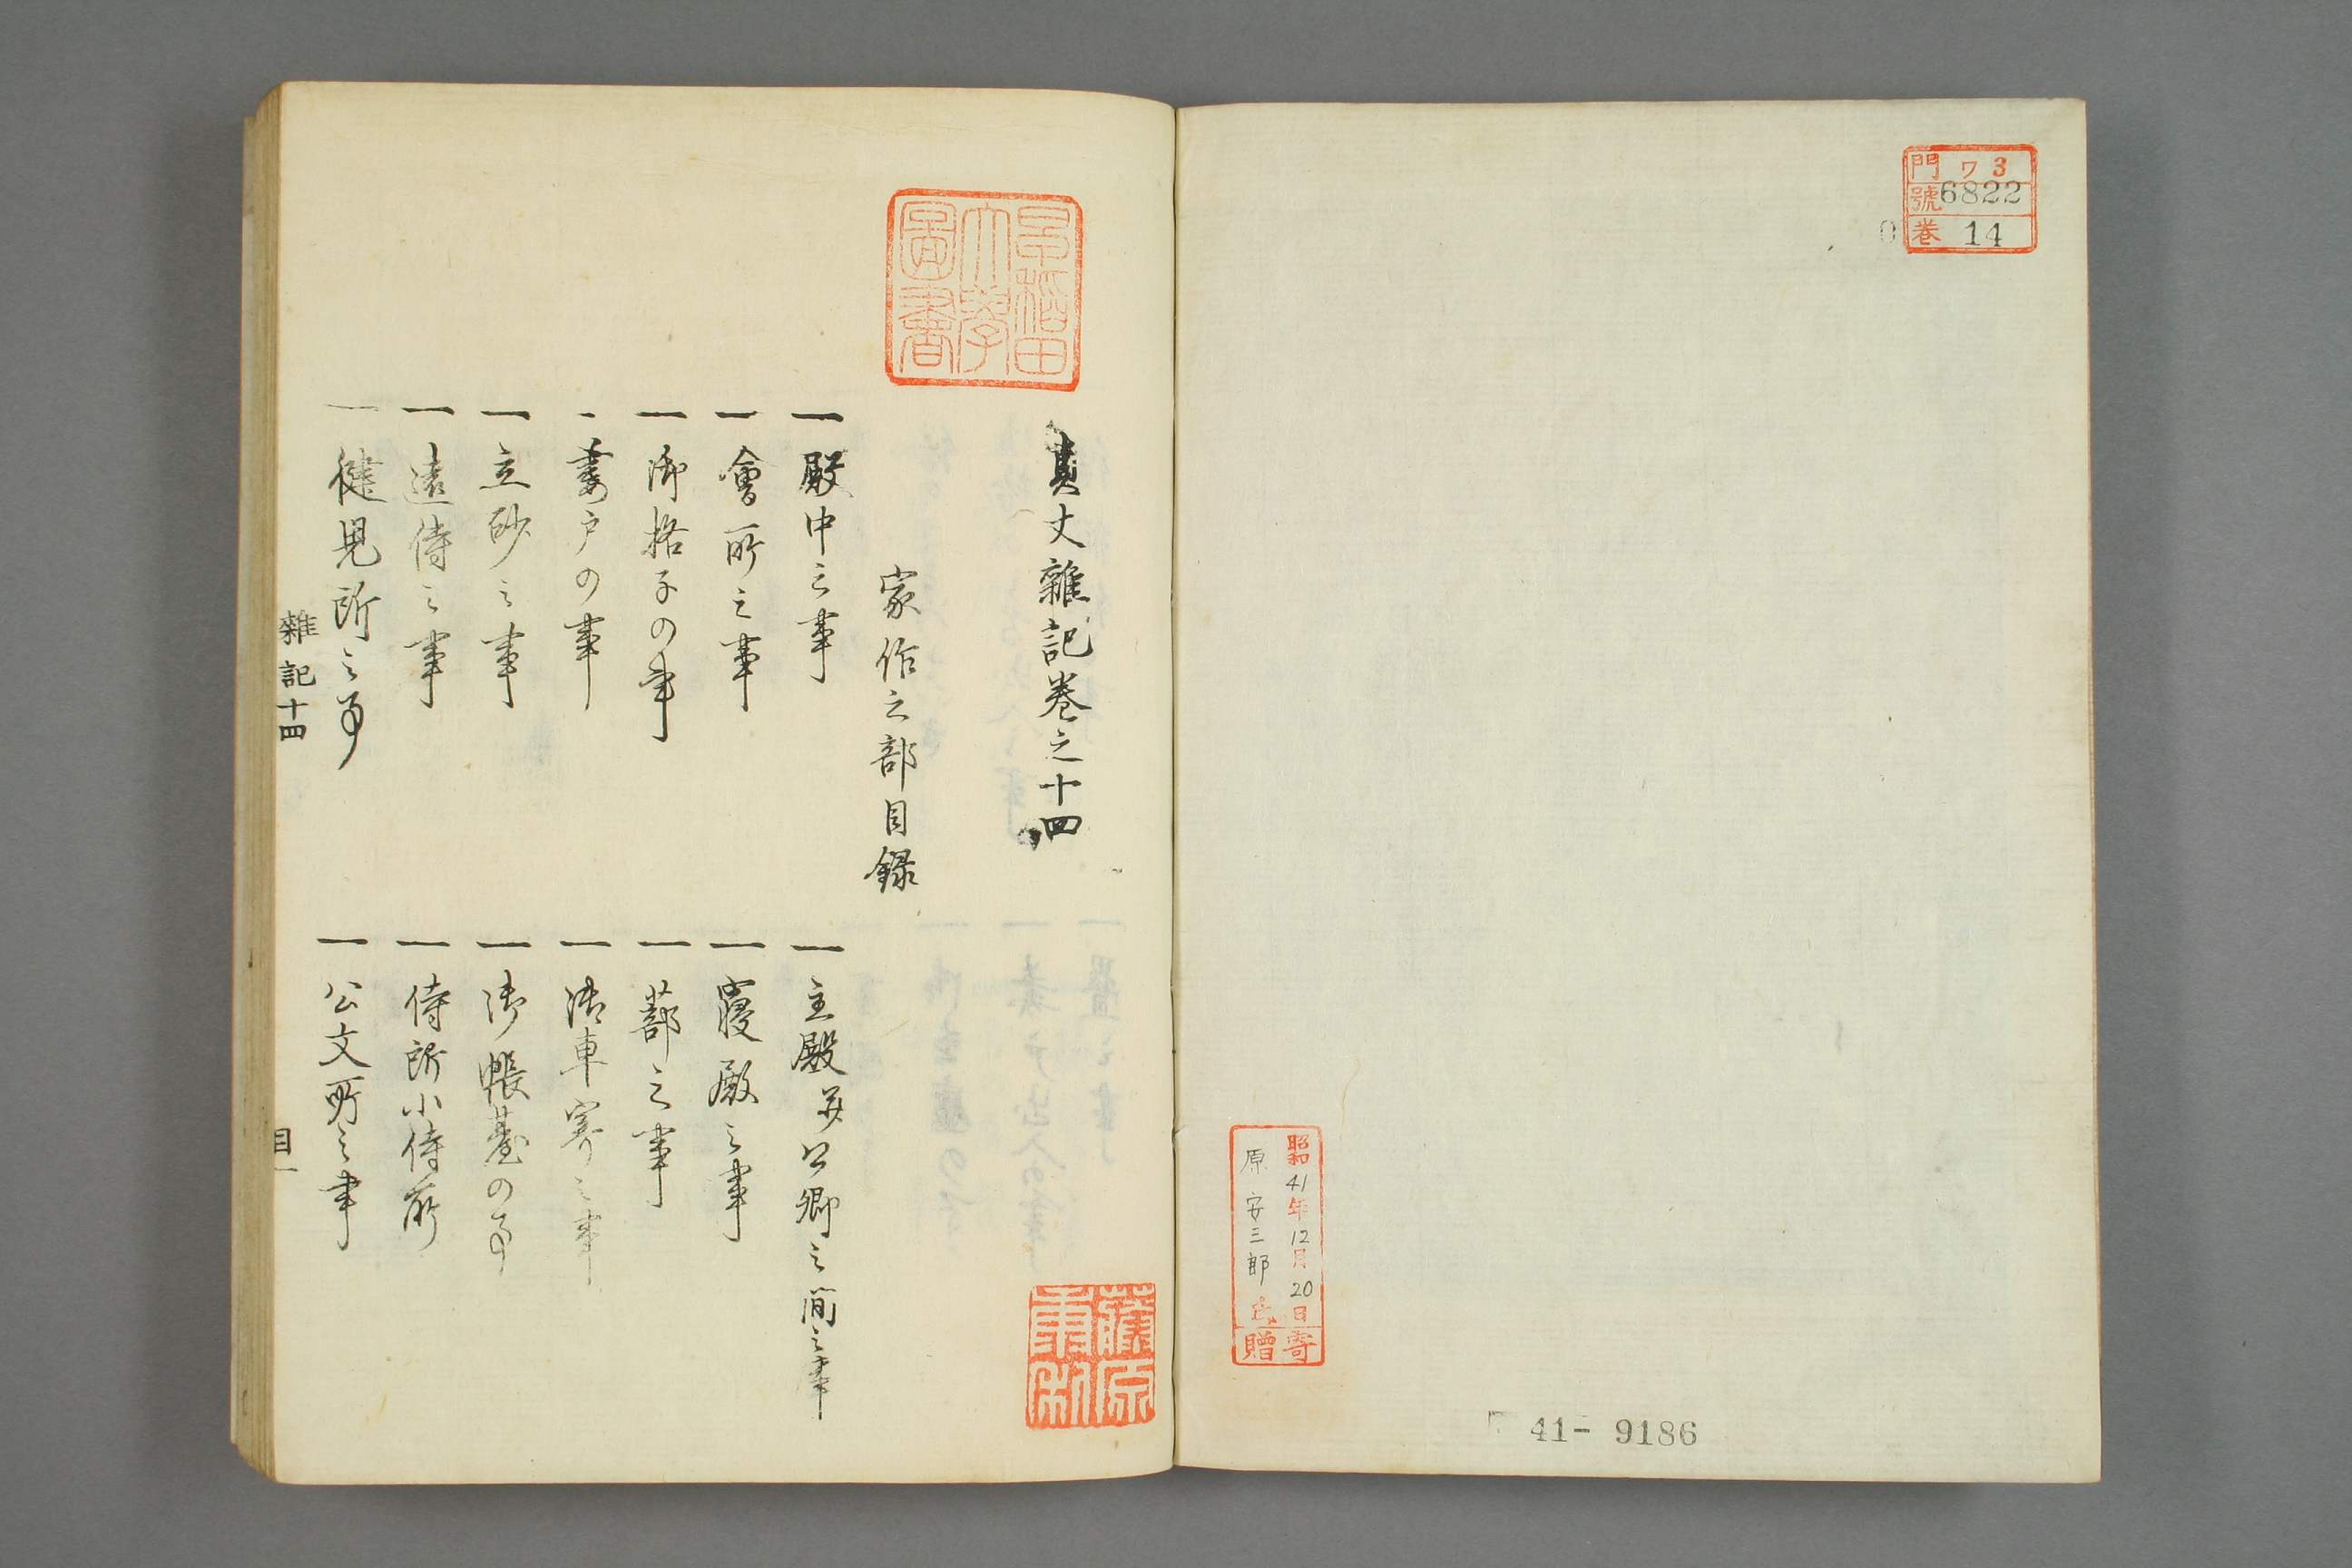 門 ワ 3
號 6822
卷 14
昭和41年12月20日
原安三郎氏
寄贈
41- 9186
早稲田大學圖書
貞丈雜記巻之十四
家作之部目録
一 殿中之事
一 主殿并公卿之間之事
一 會所之事
一 寝殿之事
一 御格子の事
一 蔀之事
一 妻戸の事
一 御車寄之事
一 立砂之事
一 御帳臺の事
一 遠侍之事
一 侍所小侍所
一 健児所之事
一 公文所之事
雜記十四
目一
藤原